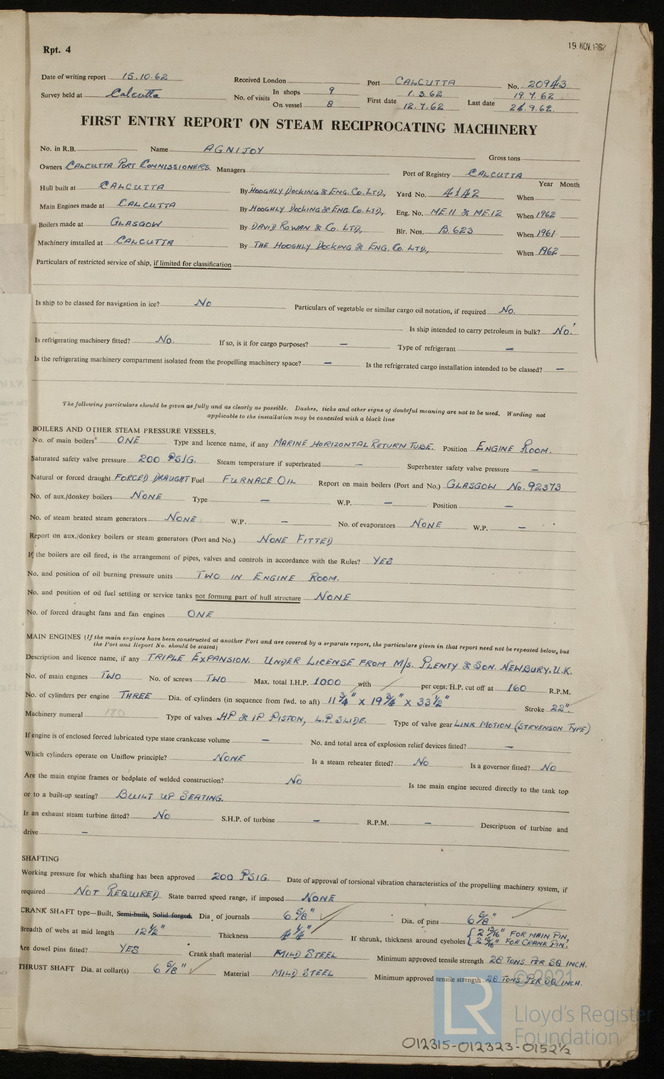 Rpt. 4
19 NOV 1962
Date of writing report 15.10.62 Received London Port CALCUTTA No. 20943
Survey held at Calcutta No. of visits In shops 9 First date 1.3.62 Last date 19.7.62
On vessel 8 12.7.62 26.9.62
FIRST ENTRY REPORT ON STEAM RECIPROCATING MACHINERY
No. in R.B. Name AGNIJOY Gross tons
Owners CALCUTTA PORT COMMISSIONERS. Managers Port of Registry CALCUTTA
Year Month
Hull built at CALCUTTA By HOOGHLY DOCKING & ENG. CO. LTD, Yard No. 4142 When
Main Engines made at CALCUTTA By HOOGHLY DOCKING & ENG. CO. LTD, Eng. No. ME.11 & ME.12 When 1962
Boilers made at GLASGOW By DAVID ROWAN & CO. LTD, Blr. Nos. B.623 When 1961
Machinery installed at CALCUTTA By THE HOOGHLY DOCKING & ENG. CO. LTD, When 1962
Particulars of restricted service of ship, if limited for classification
Is ship to be classed for navigation in ice? NO Particulars of vegetable or similar cargo oil notation, if required NO.
Is ship intended to carry petroleum in bulk? NO.
Is refrigerating machinery fitted? NO. If so, is it for cargo purposes? — Type of refrigerant —
Is the refrigerating machinery compartment isolated from the propelling machinery space? — Is the refrigerated cargo installation intended to be classed? —
The following particulars should be given as fully and as clearly as possible. Dashes, ticks and other signs of doubtful meaning are not to be used. Wording not
applicable to the installation may be cancelled with a black line
BOILERS AND OTHER STEAM PRESSURE VESSELS.
No. of main boilers ONE Type and licence name, if any MARINE HORIZONTAL RETURN TUBE. Position ENGINE ROOM.
Saturated safety valve pressure 200 PSIG. Steam temperature if superheated — Superheater safety valve pressure —
Natural or forced draught FORCED DRAUGHT Fuel FURNACE OIL Report on main boilers (Port and No.) GLASGOW NO. 92373
No. of aux./donkey boilers NONE Type — W.P. — Position —
No. of steam heated steam generators NONE W.P. — No. of evaporators NONE W.P. —
Report on aux./donkey boilers or steam generators (Port and No.) NONE FITTED
If the boilers are oil fired, is the arrangement of pipes, valves and controls in accordance with the Rules? YES
No. and position of oil burning pressure units TWO IN ENGINE ROOM.
No. and position of oil fuel settling or service tanks not forming part of hull structure NONE
No. of forced draught fans and fan engines ONE
MAIN ENGINES (If the main engines have been constructed at another Port and are covered by a separate report, the particulars given in that report need not be repeated below, but
the Port and Report No. should be stated)
Description and licence name, if any TRIPLE EXPANSION. UNDER LICENSE FROM M/S. PLENTY & SON. NEWBURY. U.K.
No. of main engines TWO No. of screws TWO Max. total I.H.P. 1000 with per cent: H.P. cut off at 160 R.P.M.
No. of cylinders per engine THREE Dia. of cylinders (in sequence from fwd. to aft) 11 3/4" x 19 3/4" x 33 1/2" Stroke 22".
Machinery numeral Type of valves HP & IP PISTON, L.P. SLIDE. Type of valve gear LINK MOTION (STEVENSON TYPE)
If engine is of enclosed forced lubricated type state crankcase volume — No. and total area of explosion relief devices fitted? —
Which cylinders operate on Uniflow principle? NONE Is a steam reheater fitted? NO Is a governor fitted? NO
Are the main engine frames or bedplate of welded construction? NO Is the main engine secured directly to the tank top
or to a built-up seating? BUILT UP SEATING.
Is an exhaust steam turbine fitted? NO S.H.P. of turbine — R.P.M. — Description of turbine and
drive —
SHAFTING
Working pressure for which shafting has been approved 200 PSIG. Date of approval of torsional vibration characteristics of the propelling machinery system, if
required NOT REQUIRED State barred speed range, if imposed NONE
CRANK SHAFT type—Built, Semi-built, Solid forged. Dia of journals 6 5/8" Dia. of pins 6 5/8"
Breadth of webs at mid length 12 1/2" Thickness 4 1/4" If shrunk, thickness around eyeholes { 2 15/16" FOR MAIN PIN,
FOR CRANK PIN.
Are dowel pins fitted? YES Crank shaft material MILD STEEL Minimum approved tensile strength 28 TONS PER SQ INCH.
THRUST SHAFT Dia. at collar(s) 6 5/8" Material MILD STEEL Minimum approved tensile strength 28 TONS PER SQ. INCH.
© 2021
LR Lloyd's Register
Foundation
012315-012323-0152 1/2